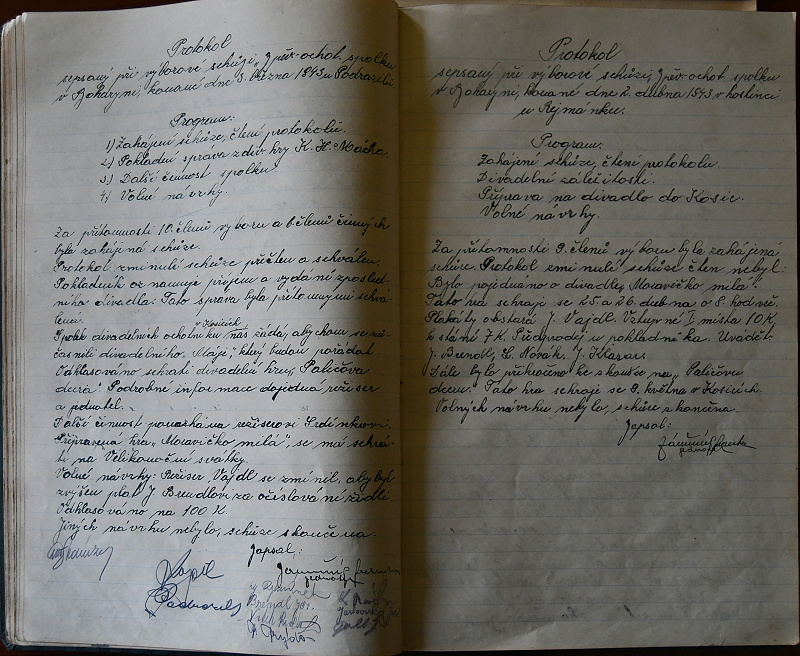 Protokol
sepsaný při výborové schůzi „Zpěv. ochot. spolku
v Boharyni, konané dne 3. března 1943 u Podrazilů.
Program:
1.) Zahájení schůze, čtení protokolu.
2.) Pokladní správa z div. hry K. H. Mácha.
3.) Další činnost spolku.
4.) Volné návrhy.
Za přítomnosti 10. členů výboru a 6 členů činných
byla zahájena schůze.
Protokol z minulé schůze přečten a schválen.
Pokladník oznamuje příjem a vydání z posled-
ního divadla. Tato správa byla přítomnými schvá-
lena.
Spolek divadelních ochotníků v Kosicích nás žádá, abychom se zú-
častnili divadelního „Máje", který budou pořádat
Odhlasováno sehrati divadelní hru „Paličova
dcera". Podrobné informace dojedná režiser
a jednatel.
Další činnost ponechána režiseovi Srdínkovi.
Připravena hra „Moravičko milá", se má sehrá-
ti na Velikonoční svátky.
Volné návrhy: Režiser Vajdl se zmínil, aby byl
zvýšen plat J. Brendlovi za očíslování židlí.
Odhlasováno na 100 K.
Jiných návrhu nebylo, schůze skončena.
Zapsal:
jednatel
Vajdl
Protokol
sepsaný při výborové schůzi, Zpěv. ochot. spolku
v Boharyni, konané dne 2. dubna 1943 v hostinci
u Rejmánku.
Program:
Zahájení schůze, čtení protokolu.
Divadelní záležitosti.
Příprava na divadlo do Kosic.
Volné návrhy.
Za přítomnosti 9. členů výboru byla zahájená
schůze. Protokol z minulé schůze čten nebyl.
Bylo pojednáno o divadle, „Moravičko milá".
Tato hra sehraje se 25. a 26. dubna o 8. hodině.
Plakáty obstará J. Vajdl. Vstupné I. místa 10 K.
k stání 7 K. Předprodej u pokladníka. Uvádět:
J. Brendl, Novák, J. Kazars.
Dále bylo přikročeno ke zkoušce na „Paličovu
dceru". Tato hra sehraje se 9. května v Kosicích.
Volných návrhu nebylo, schůze skončena.
Zapsal:
jednatel